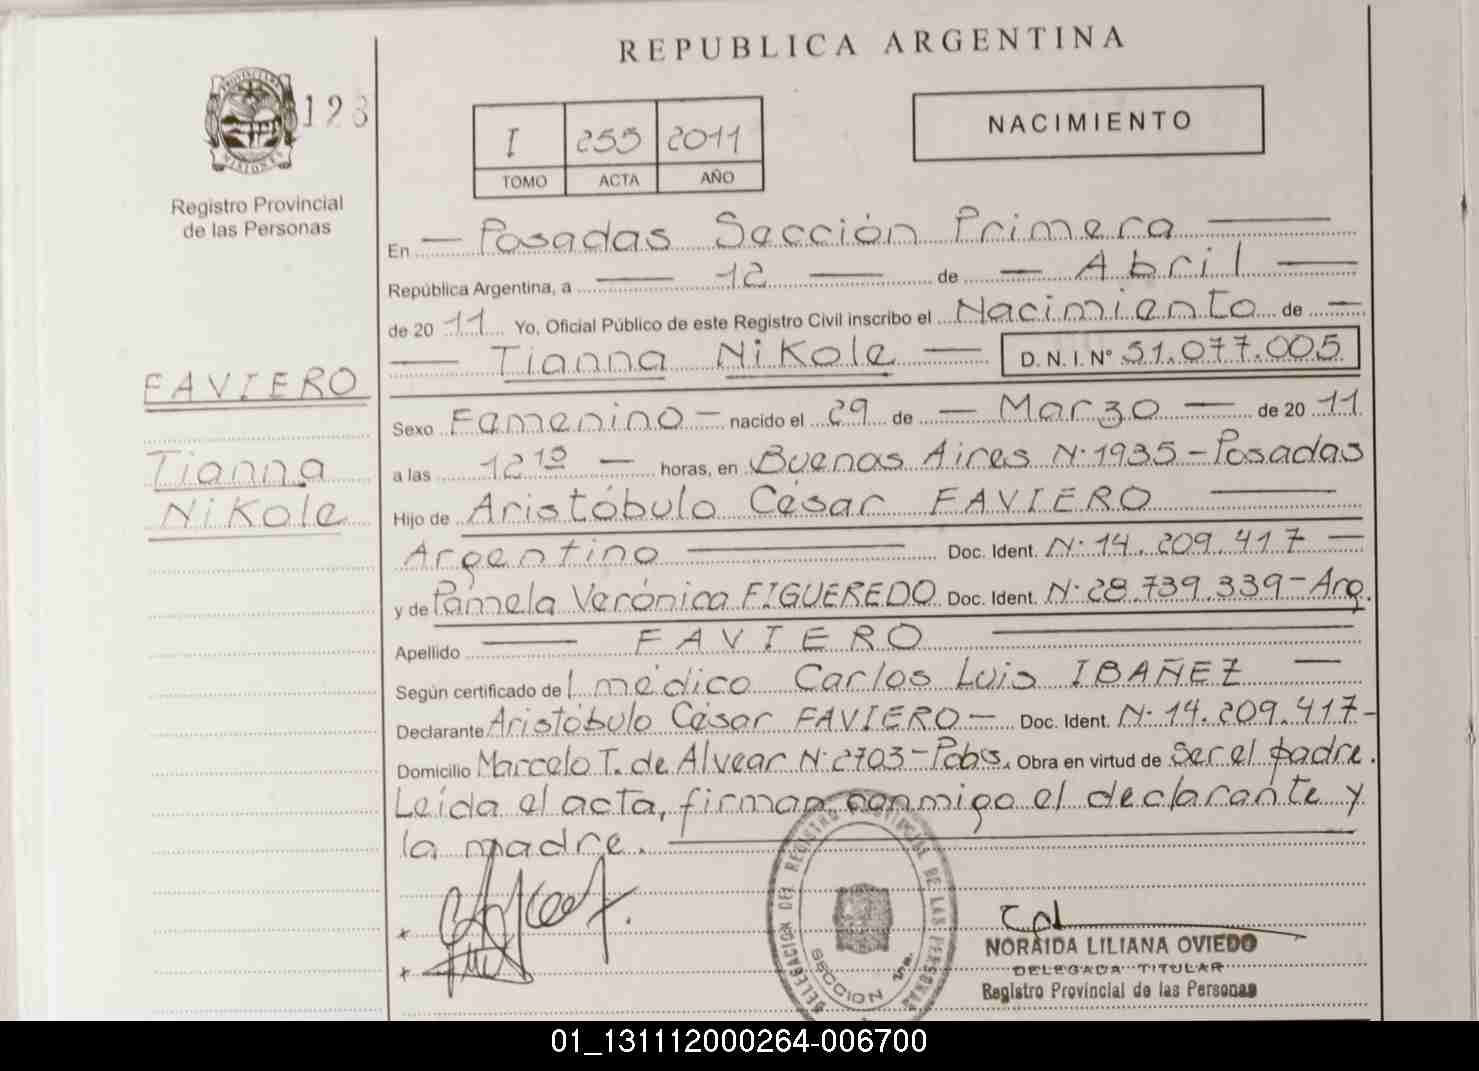 REPUBLICA ARGENTINA
123
I 255 2011
TOMO ACTA AÑO
NACIMIENTO
PROVINCIA DE MISIONES
Registro Provincial
de las Personas
En Posadas Sección Primera
República Argentina, a 12 de Abril
de 2011 Yo, Oficial Público de este Registro Civil inscribo el Nacimiento de
Tianna Nikole D.N.I. Nº 51.077.005
FAVIERO
Tianna
Nikole
Sexo Femenino - nacido el 29 de Marzo de 2011
a las 12 10 horas, en Buenas Aires Nº 1935 - Posadas
Hijo de Aristóbulo César FAVIERO
Argentino Doc. Ident. Nº 14.209.417
y de Pamela Verónica FIGUEREDO Doc. Ident. Nº 28.739.339 - Arg.
Apellido FAVIERO
Según certificado del médico Carlos Luis IBAÑEZ
Declarante Aristóbulo César FAVIERO - Doc. Ident. Nº 14.209.417 -
Domicilio Marcelo T. de Alvear Nº 2703 - Pdas. Obra en virtud de ser el padre.
Leída el acta, firman conmigo el declarante y
la madre.
DELEGACION DEL REGISTRO PROVINCIAL DE LAS PERSONAS
SECCION 1ra.
NORAIDA LILIANA OVIEDO
DELEGADA TITULAR
Registro Provincial de las Personas
01_131112000264-006700